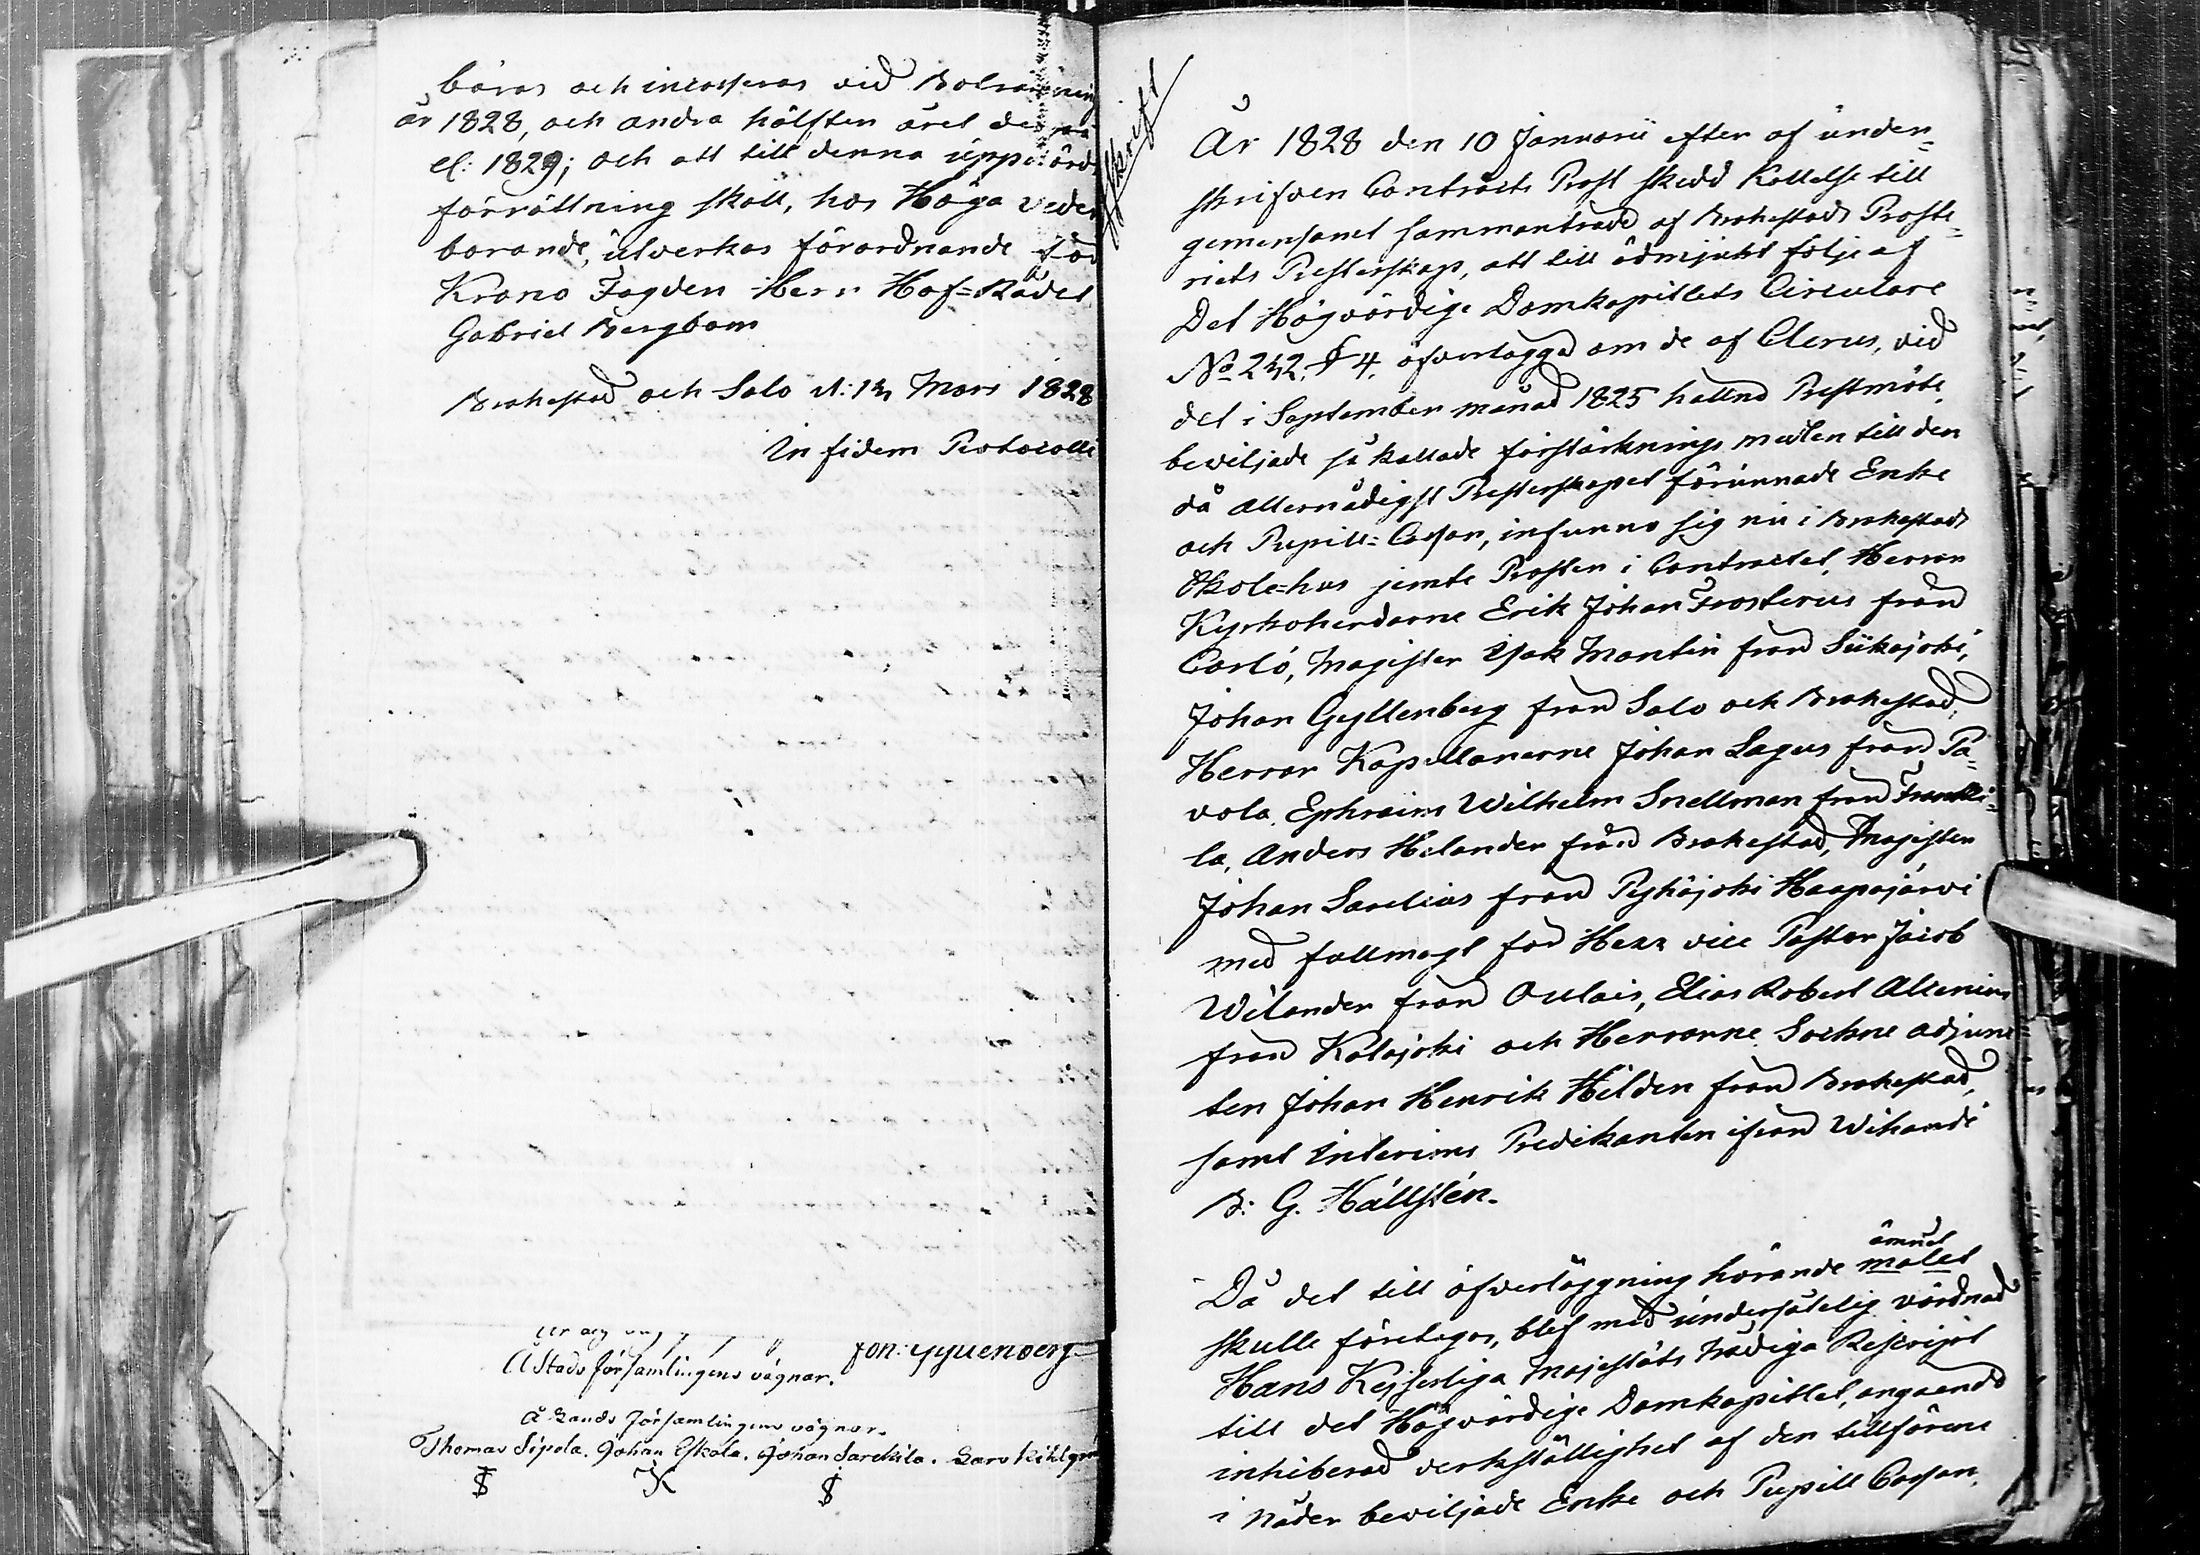 bäras och incasseras vid Bolräkning
år 1828, och andra hälften året derpå
el: 1829; och att till denna uppbörds
förrättning skall, hos Höga veder
borande, utverkas förordnande för
Krono Fogden Herr Hof=Rådet
Gabriel Bergbom
Brahestad och Salo d: 13 Mars 1828
In fidem Protocolli
Jon: Gyllenberg
Å Stads församlingens vägnar.
Å Lands församlingens vägnar.
Thomas Sipola. Johan Eskola. Johan Sarckila. Lars Kihlgren
Afskrift
År 1828 den 10 Januarii efter af under=
skrifven Contracts Prost skedd Kallelse till
gemensamt sammanträde af Brahestads Proste=
riets Presterskap, att till ödmjukt följe af
Det Högvördige Domkapitlets Circulare
No 232. § 4. öfverlägga om de af Clerus, vid
det i September månad 1825 hållna Prestmöte,
beviljade så kallade förstärknings medlen till den
då Allernådigst Presterskapet förunnade Enke
och Pupill=Cassan, infunno sig nu i Brahestads
Skole=hus jemte Prosten i Contractet, Herrar
Kyrkoherdarne Erik Johan Frosterus från
Carlö, Magister Isak Montin från Siikajoki,
Johan Gyllenberg från Salo och Brahestad;
Herrar Kapellanerne Johan Lagus från Pa=
vola, Ephraim Wilhelm Snellman från Frantsi=
la, Anders Helander från Brahestad, Magister
Johan Sarelius från Pyhäjoki Haapajärvi
med fullmagt för Herr vice Pastor Jacob
Wilander från Oulais, Elias Robert Alcenius
från Kalajoki och Herrarne Sockne adjunc=
ten Johan Henrik Helden från Brahestad,
samt Interims Predikanten ifrån Wihandi
B: G. Hällstén.
Då det till öfverläggning hörande målet
ämnet
skulle företagas, blef med undersåtelig vördnad
Hans Kejserliga Majestäts Nådiga Rescript
till det Högvördige Domkapitlet, angående
inhiberad verkställighet af den tillförene
i Nåder beviljade Enke och Pupill Cassan,